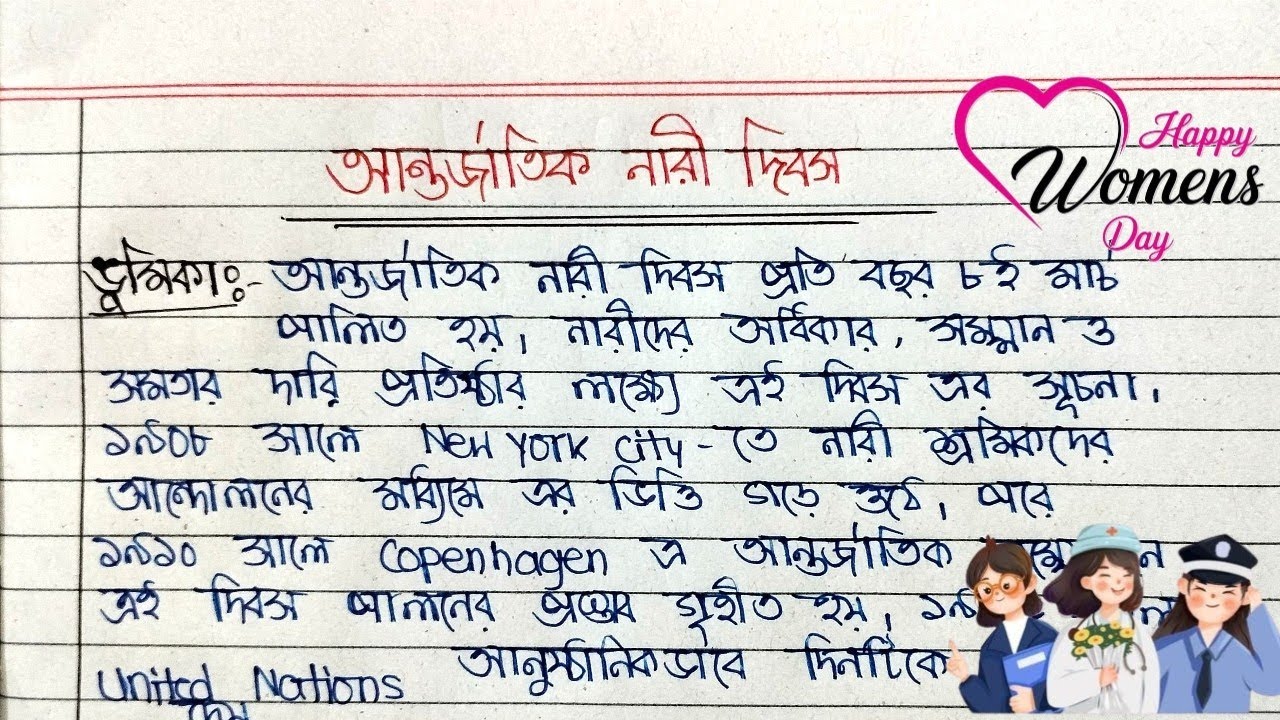 আন্তর্জাতিক নারী দিবস
Happy
Womens
Day
ভূমিকাঃ- আন্তর্জাতিক নারী দিবস প্রতি বছর ৮ই মার্চ
পালিত হয়, নারীদের অধিকার, সম্মান ও
ক্ষমতার দাবি প্রতিষ্ঠার লক্ষ্যে এই দিবস এর সূচনা,
১৯০৮ সালে New York City-তে নারী শ্রমিকদের
আন্দোলনের মাধ্যমে এর ভিত্তি গড়ে ওঠে, পরে
১৯১০ সালে Copenhagen এ আন্তর্জাতিক
এই দিবস পালনের প্রস্তাব গৃহীত হয়,
United Nations আনুষ্ঠানিকভাবে দিনটিকে